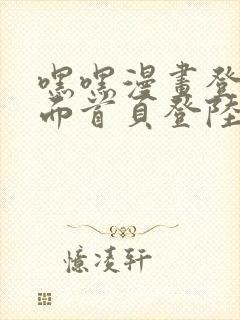 嘿嘿漫畫登
而首頁登陸
憶凌轩